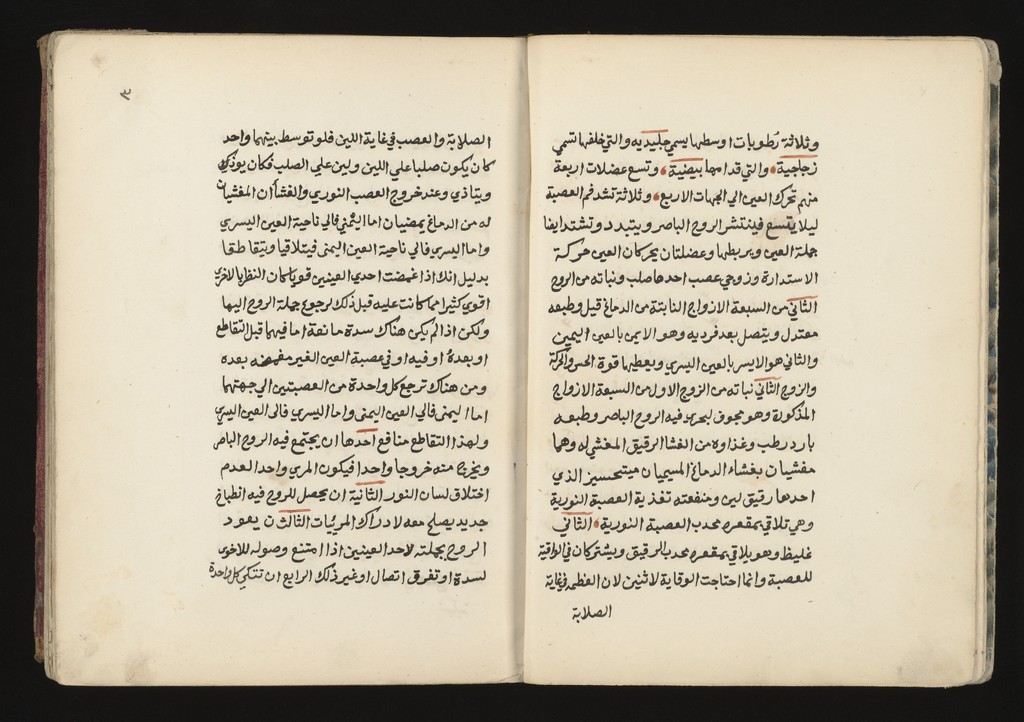 وثلاثة رطوبات اوسطها يسمي جليديه والتي خلفها تسمي
زجاجية والتي قدامها بيضية وتسع عضلات اربعة
منهم تحرك العين الي الجهات الاربع وثلاثة تشد فم العصبة
ليلا يتسع فينتشر الروح الباصر ويتبدد وتشتد ايضا
جملة العين ويربطها وعضلتان يحركان العين حركة
الاستدارة وزوجي عصب احدها صلب ونباته من الزوج
الثاني من السبعة الازواج النابتة من الدماغ قيل وطبعه
معتدل ويتصل بعد فرديه وهو الايمن بالعين اليمين
والثاني هو الايسر بالعين اليسري ويعطيها قوة الحس والحركة
والزوج الثاني نباته من الزوج الاول من السبعة الازواج
المذكورة وهو مجوف يجري فيه الروح الباصر وطبعه
بارد رطب وغذاوه من الغشا الرقيق المغشي له وهما
مغشيان بغشاء الدماغ المسميان الذي
احدها رقيق لين ومنفعته تغذية العصبة النورية
وهي تلاقي بمقعره محدب العصبة النورية الثاني
غليظ وهو يلاقي بمقعره محدب الرقيق ويشتركان في الواقية
للعصبة وانما احتاجت الوقاية لاثنين لان العظم في غاية
الصلابة
٣
الصلابة والعصب في غاية اللين فلو توسط بينهما واحد
كان يكون صلبا علي اللين ولين علي الصلب فكان يوذي
ويتاذي وعند خروج العصب النوري والغشاان المغشيان
له من الدماغ يمضيان اما اليمني فالي ناحية العين اليسري
واما اليسري فالي ناحية العين اليمني فيتلاقيا ويتقاطعا
بدليل انك اذا غمضت احدي العينين قويا كان النظر بالاخري
اقوي كثيرا مما كانت عليه قبل ذلك لرجوع جملة الروح اليها
ولكن اذا لم يكن هناك سدة مانعة اما فيهما قبل التقاطع
او بعده او فيه او في عصبة العين الغير بعده
ومن هناك ترجع كل واحدة من العصبتين الي جهتها
اما اليمني فالي العين اليمني واما اليسري فالي العين اليسري
ولهذا التقاطع منافع احدها ان يجتمع فيه الروح الباصر
ويخرج منه خروجا واحدا فيكون المري واحد العدم
اختلاق لسان النور الثانية ان يحصل للروح فيه انطباع
جديد يصلح معه لادراك المرييات الثالث ان يعود
الروح بجملته لاحد العينين اذا امتنع وصوله للاخري
لسدة او تفرق اتصال او غير ذلك الرابع ان تتكي كل واحدة